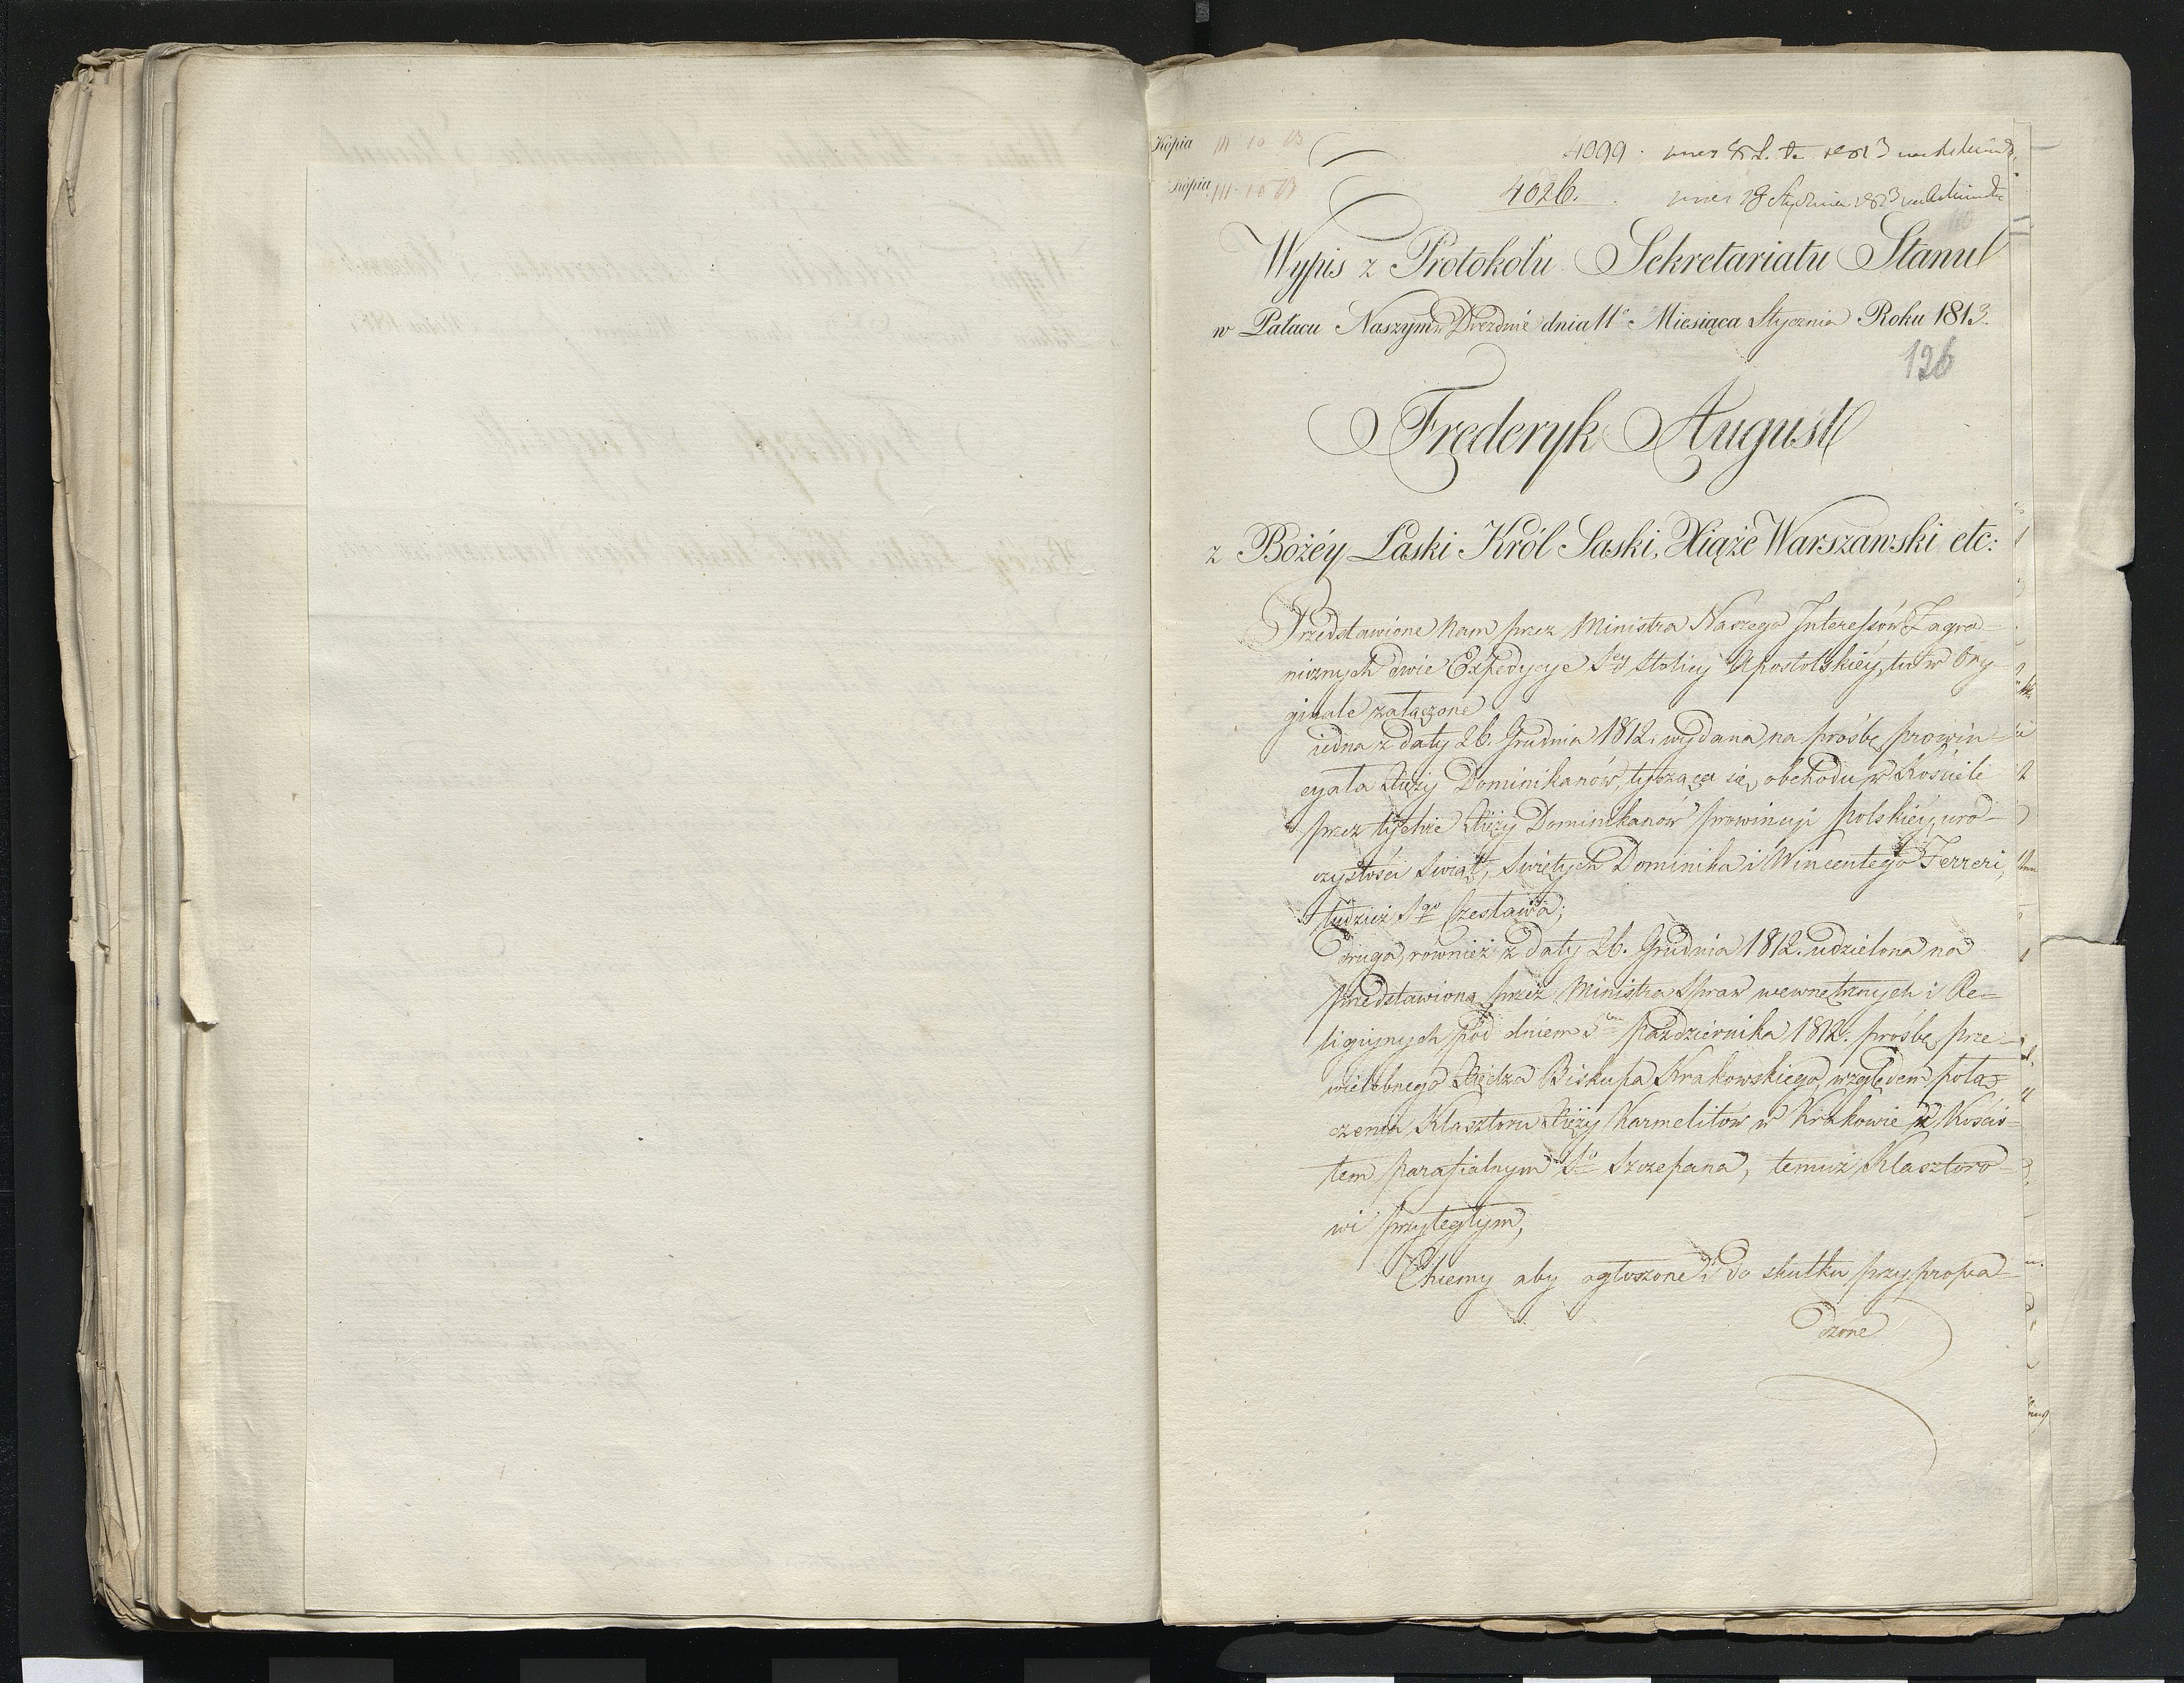 Kopia
4099.
Kopia
4026.
Wypis z Protokółu Sekretariatu Stanu
w Pałacu Naszym w Dreznie dnia 11º Miesiąca Stycznia Roku 1813.
126
Frederyk August
z Bożéy Łaski Król Saski, Xiąże Warszawski etc:
Przedstawione Nam przez Ministra Naszego Interessów Zagra-
nicznych dwie Expedycye Sey Stolicy Apostolskiéy, tu w Ory-
ginale załączone
iedna z daty 26. Grudnia 1812. wydana na prośbę prowin-
cyała Xięży Dominikanów, tycząca się obchodu w Kościele
przez tychże Xięży Dominikanów prowincyi polskiéy, uro-
czystości Swiąt, Swiętych Dominika i Wincentego Ferreri,
tudzież Sgo Czesława;
druga, również z daty 26. Grudnia 1812. udzielona na
przedstawioną przez Ministra Spraw wewnętrznych i Re-
ligiynych pod dniem 5m października 1812. prośbę prze-
wielebnego Xiędza Biskupa Krakowskiego, względem połą-
czenia Klasztoru Xięży Karmelitów w Krakowie z Kościo-
łem parafialnym Sgo Szczepana, temuż Klasztoro-
wi przyległym,
Chcemy aby ogłoszone i do skutku przyprowa-
dzone